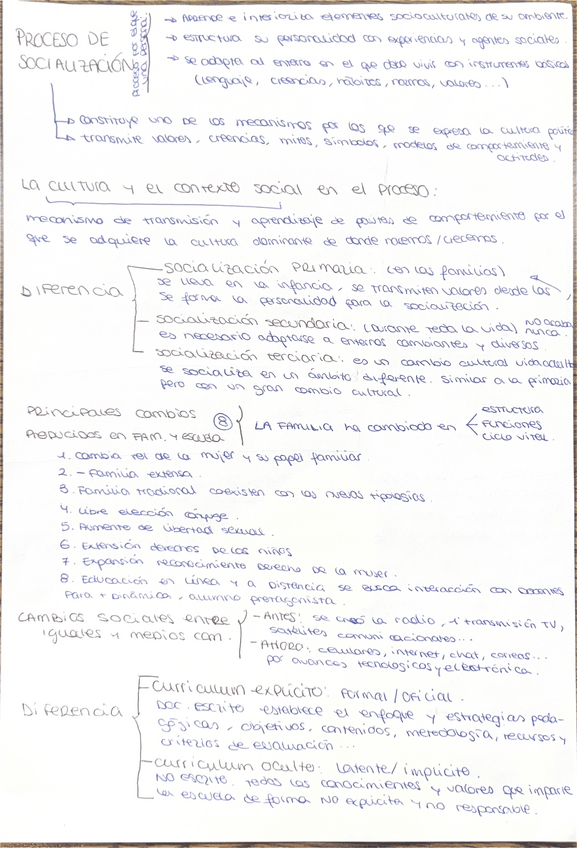 PROCESO DE
SOCIALIZACIÓN
proceso por el que
una persona:
→ Aprende e interioriza elementos socioculturales de su ambiente.
→ estructura su personalidad con experiencias y agentes sociales.
→ se adapta al entorno en el que debe vivir con instrumentos básicos
(lenguaje, creencias, hábitos, normas, valores...)
→ constituye uno de los mecanismos por los que se expresa la cultura
→ transmite valores, creencias, mitos, símbolos, modelos de comportamiento y
actitudes.
LA CULTURA y el contexto social en el proceso:
mecanismo de transmisión y aprendizaje de pautas de comportamiento por el
que se adquiere la cultura dominante de donde nacemos/crecemos.
DIFERENCIA
socialización PRIMARIA: (en las familias)
se lleva en la infancia, se transmiten valores desde las
se forma la personalidad para la socialización.
socialización secundaria: (durante toda la vida) NO acaba
nunca.
es necesario adaptarse a entornos cambiantes y diversos
socialización terciaria: es un cambio cultural vida adulta
se socializa en un ámbito diferente. Similar a la primaria
pero con un gran cambio cultural.
PRINCIPALES CAMBIOS
PRODUCIDOS EN FAM. Y escuela
8
LA FAMILIA ha cambiado en
estructura
Funciones
Ciclo vital.
1. Cambia rol de la mujer y su papel familiar.
2. - Familia extensa.
3. Familia tradicional coexisten con las nuevas tipologías.
4. Libre elección cónyuge.
5. Aumento de libertad sexual.
6. Extensión derechos de los niños
7. Expansión reconocimiento derecho de la mujer.
8. Educación en línea y a Distancia se busca interacción con docentes
Para + dinámica, alumno protagonista.
CAMBIOS SOCIALES entre
iguales y medios com.
- ANTES: se creó la radio, 1ª transmisión TV,
satélites comunicacionales...
- AHORA: celulares, internet, chat, correos...
por avances tecnológicos y electrónica.
DIFERENCIA
curriculum explícito: Formal/Oficial.
Doc. escrito establece el enfoque y estrategias peda-
gógicas, objetivos, contenidos, metodología, recursos y
criterios de evaluación...
- curriculum oculto: Latente/implícito.
NO escrito. todos los conocimientos y valores que imparte
la escuela de forma NO explícita y no responsable.